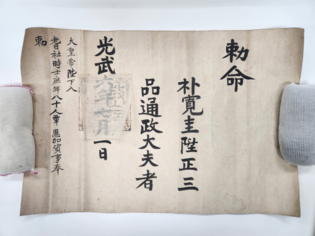 勅命
朴寬圭陞正三
品通政大夫者
光武六年 月 一日
大皇帝陛下入
耆社時士庶年八十人
加資事奉
勅